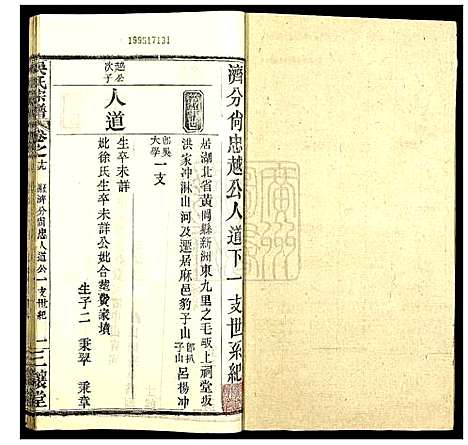 199517131
濟分尙忠越公人道下一支世系紀
居湖北省黃岡縣新洲東九里之毛坂上祠堂坂
洪家冲淋山河及遷居麻邑豹子山 卽扒子山 呂楊冲
卽吳大學 一支
越公次子
人道
生卒未詳
妣徐氏生卒未詳公妣合墓費家墳
生子二 秉翠 秉章
吳氏宗譜
卷之
濟分尙忠人道公一支世紀
一
三讓堂